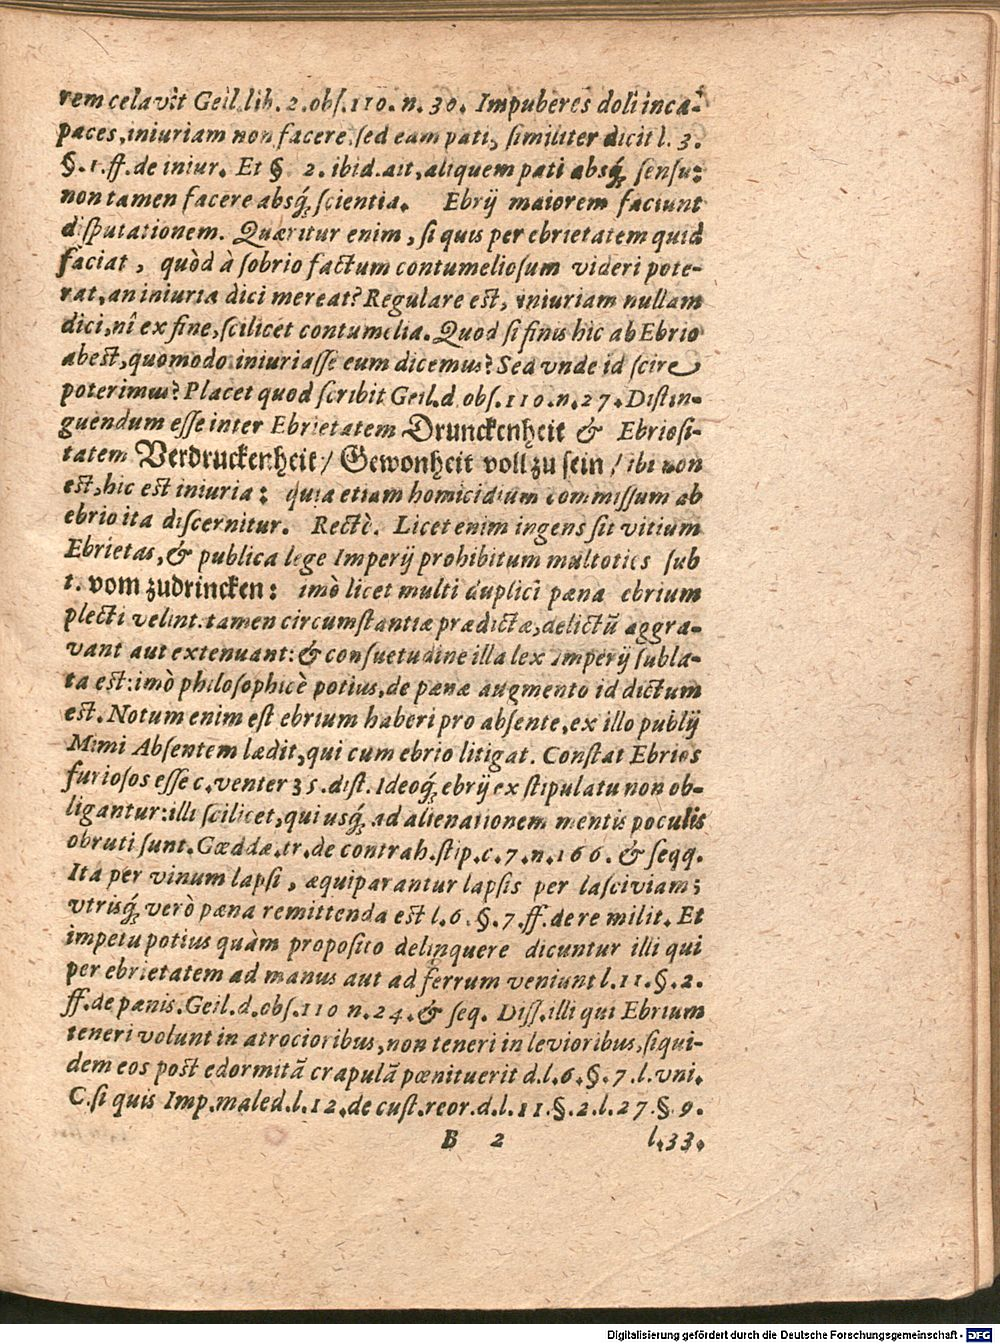 rem celavit Geil. lib. 2. obſ. 110. n. 30. Impuberes doli inca-
paces, iniuriam non facere, ſed eam pati, ſimiliter dicit l. 3.
§. 1. ff. de iniur. Et §. 2. ibid. ait, aliquem pati absq; ſenſu:
non tamen facere absq; ſcientia. Ebrij maiorem faciunt
diſputationem. Quæritur enim, ſi quis per ebrietatem quid
faciat, quòd à ſobrio factum contumelioſum videri pote-
rat, an iniuria dici mereat? Regulare est, iniuriam nullam
dici, nî ex fine, ſcilicet contumelia. Quod ſi finis hic ab Ebrio
abest, quomodo iniuriaſſe eum dicemus? Sed vnde id ſcire
poterimus? Placet quod ſcribit Geil. d. obſ. 110. n. 27. Distin-
guendum eſſe inter Ebrietatem Drunckenheit & Ebrioſi-
tatem Verdruckenheit/ Gewonheit voll zu ſein/ ibi non
est, hic est iniuria: quia etiam homicidium commiſſum ab
ebrio ita diſcernitur. Rectè. Licet enim ingens ſit vitium
Ebrietas, & publica lege Imperij prohibitum multoties ſub
t. vom zudrincken: imò licet multi duplici pæna ebrium
plecti velint. tamen circumſtantiæ prædictæ, delictũ aggra-
vant aut extenuant: & conſuetudine illa lex Imperij ſubla-
ta est: imò philoſophicè potius, de pænæ augmento id dictum
est. Notum enim eſt ebrium haberi pro abſente, ex illo publij
Mimi Abſentem lædit, qui cum ebrio litigat. Conſtat Ebrios
furioſos eſſe c. venter 35. diſt. Ideoq; ebrij ex ſtipulatu non ob-
ligantur: illi ſcilicet, qui usq; ad alienationem mentis poculis
obruti ſunt. Gœddæ. tr. de contrah. ſtip. c. 7. n. 166. & ſeqq.
Ita per vinum lapſi, æquiparantur lapſis per laſciviam;
vtrisq; verò pæna remittenda est l. 6. §. 7. ff. de re milit. Et
impetu potius quàm propoſito delinquere dicuntur illi qui
per ebrietatem ad manus aut ad ferrum veniunt l. 11. §. 2.
ff. de pænis. Geil. d. obſ. 110 n. 24. & ſeq. Diſſ. illi qui Ebrium
teneri volunt in atrocioribus, non teneri in levioribus, ſiqui-
dem eos post edormitã crapulã pænituerit d. l. 6. §. 7. l. vni.
C. ſi quis Imp. maled. l. 12. de cuſt. reor. d. l. 11. §. 2. l. 27. §. 9.
B 2 l. 33.
Digitalisierung gefördert durch die Deutsche Forschungsgemeinschaft - DFG